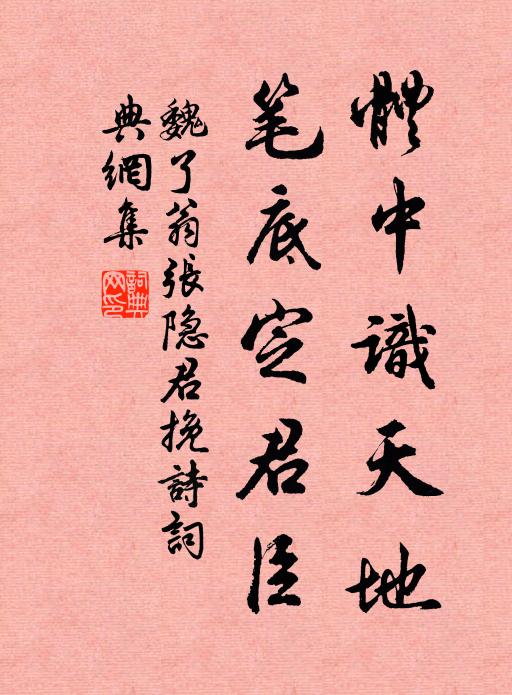 體中識天地
笔底定君臣
魏了翁張隐君挽詩詞
典網集
詞典網印